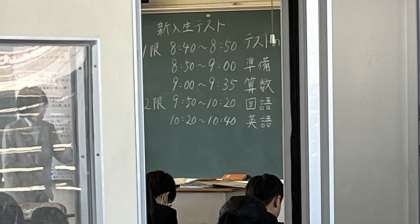 新入生テスト
1限 8:40～8:50 テスト
8:50～9:00 準備
9:00～9:35 算数
2限 9:50～10:20 国語
10:20～10:40 英語